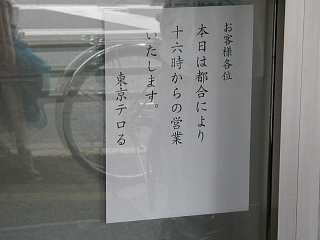 お客様各位
本日は都合により
十六時からの営業
いたします。
東京テロる